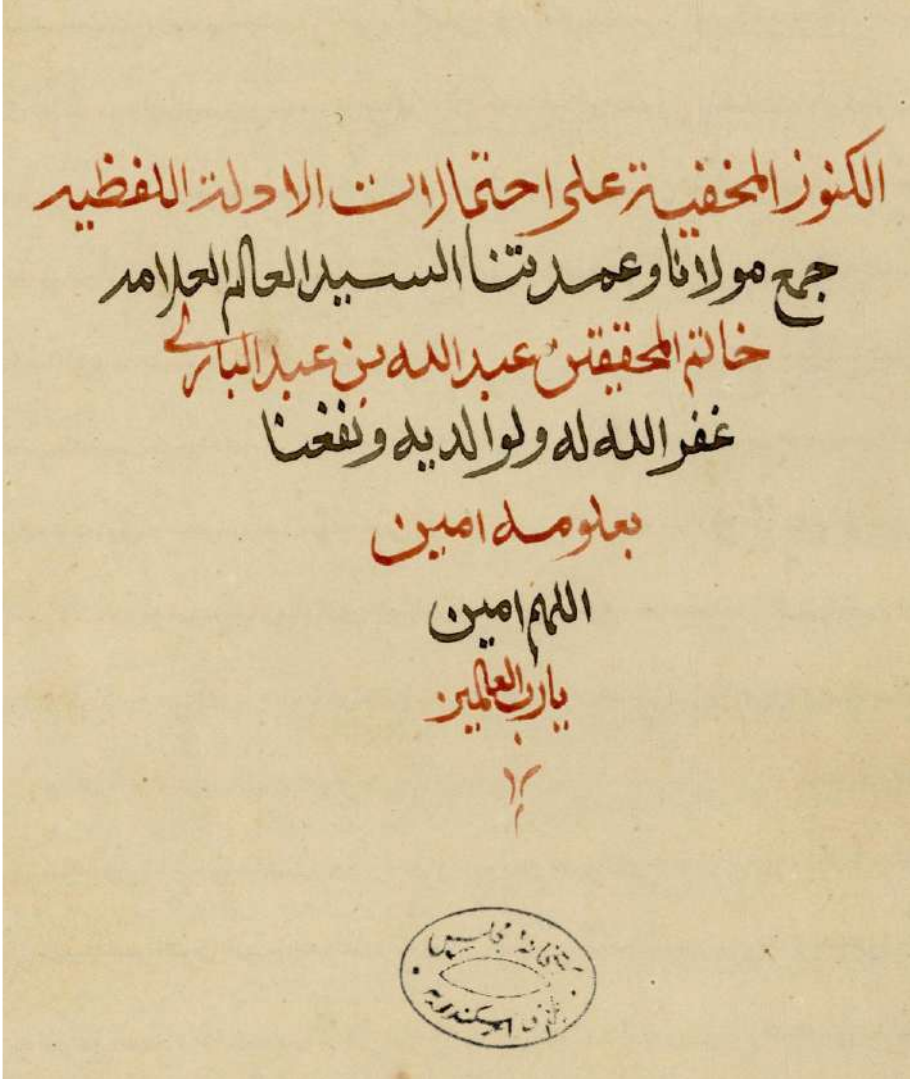 الكنوز المخفية على احتمالات الادلة اللفظيه
جمع مولانا وعمدتنا السيد العالم العلامه
خاتم المحققين عبد الله بن عبد البارى
غفر الله له ولوالديه ونفعنا
بعلومه امين
اللهم امين
يارب العالمين
كتبخانة مجلس
بلدى اسكندرية